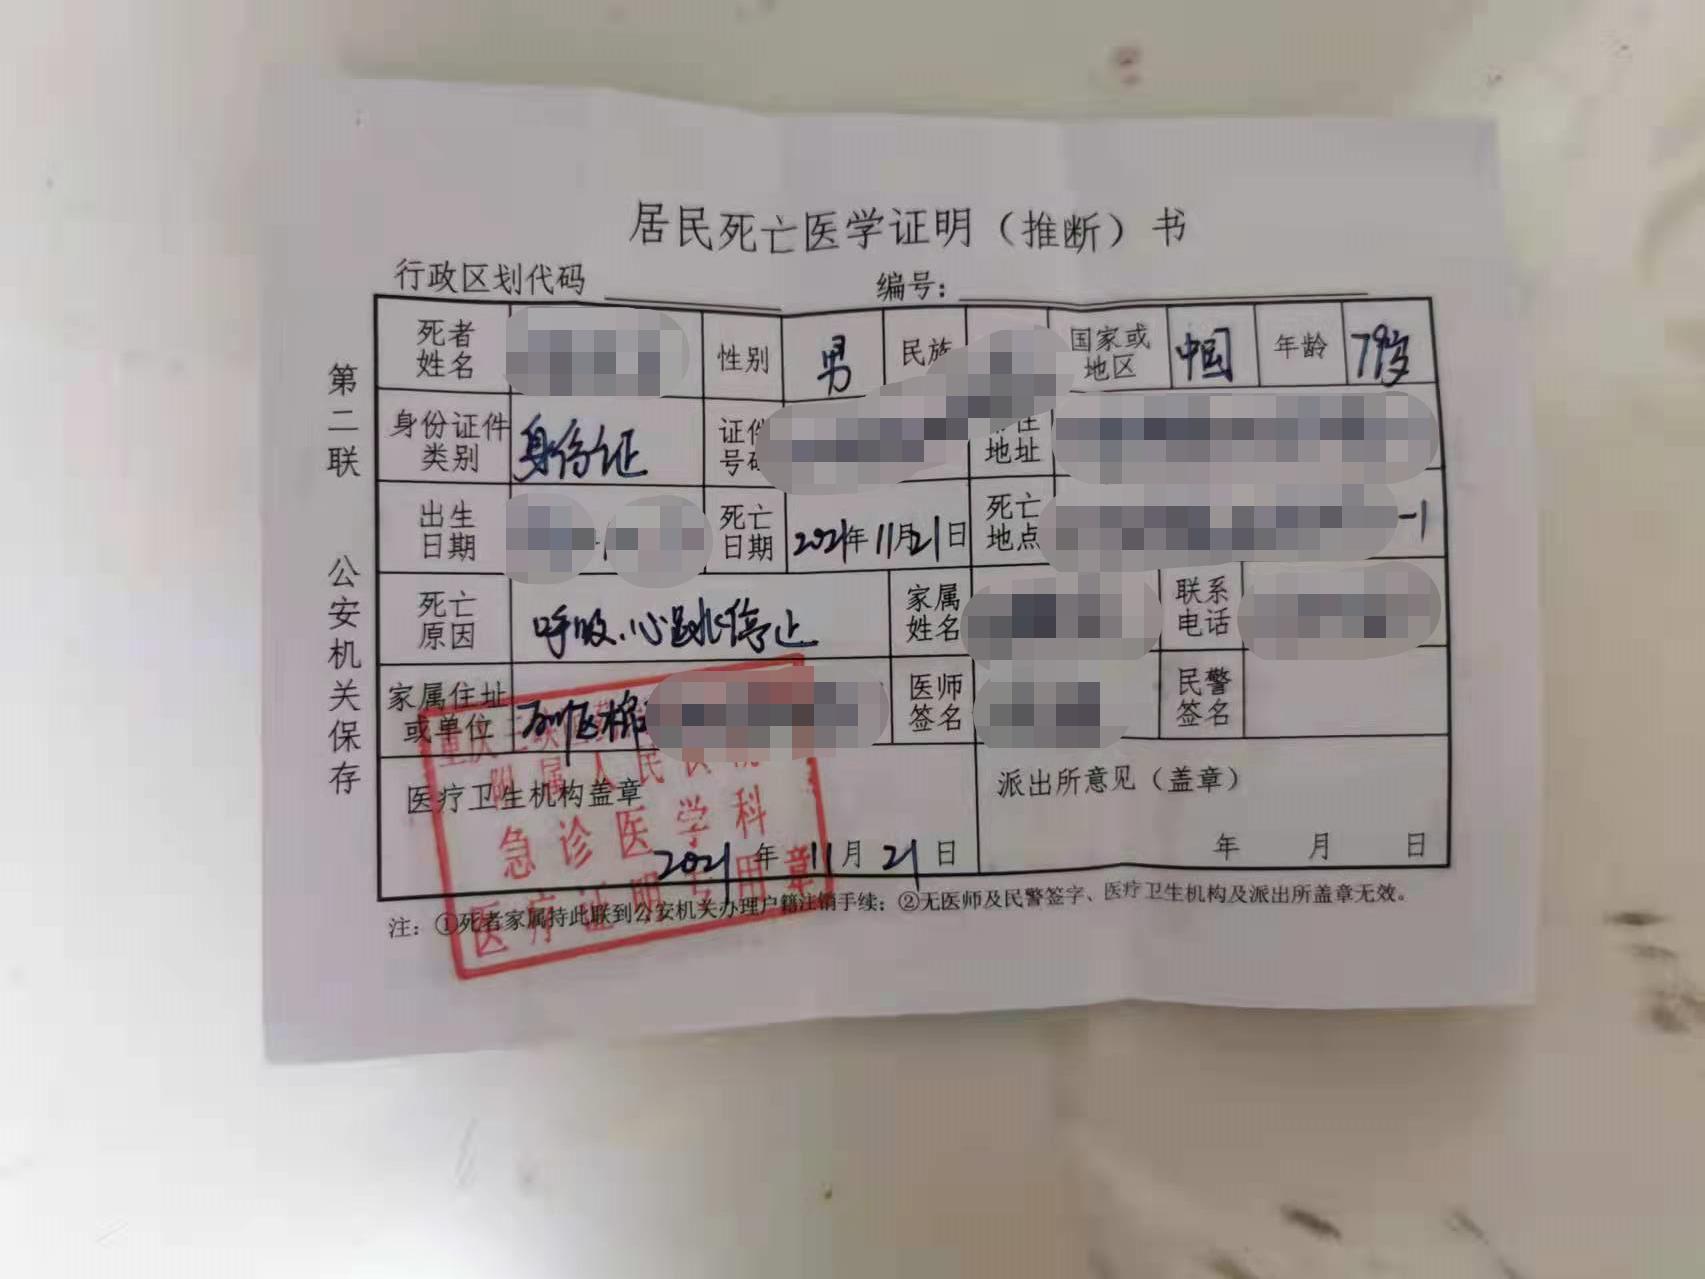 居民死亡医学证明（推断）书
行政区划代码 编号：
第二联 公安机关保存
死者姓名 性别 男 民族 国家或地区 中国 年龄 79岁
身份证件类别 身份证 证件号码 地址
出生日期 死亡日期 2021年11月21日 死亡地点 -1
死亡原因 呼吸、心跳停止 家属姓名 联系电话
家属住址或单位 万州区 医师签名 民警签名
医疗卫生机构盖章 派出所意见（盖章）
附属人民医院
急诊医学科
医疗证明专用章
2021年11月21日 年 月 日
注：①死者家属持此联到公安机关办理户籍注销手续；②无医师及民警签字、医疗卫生机构及派出所盖章无效。